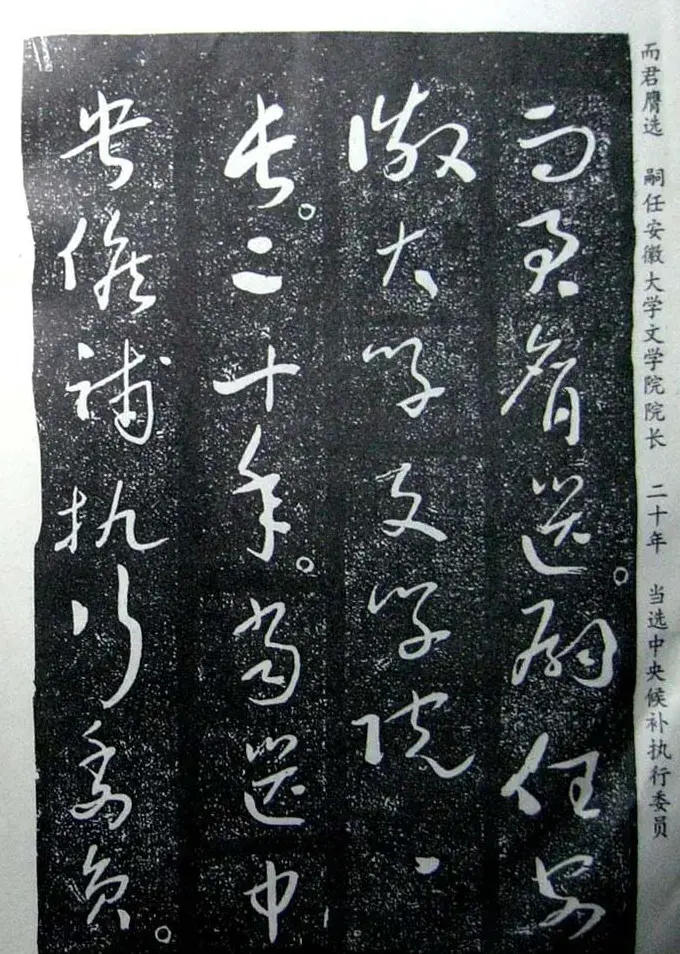 而君膺选 嗣任安徽大学文学院院长 二十年 当选中央候补执行委员
而君膺選。嗣任安
徽大学文学院〻
长。二十年。当選中
央候補执行委员。